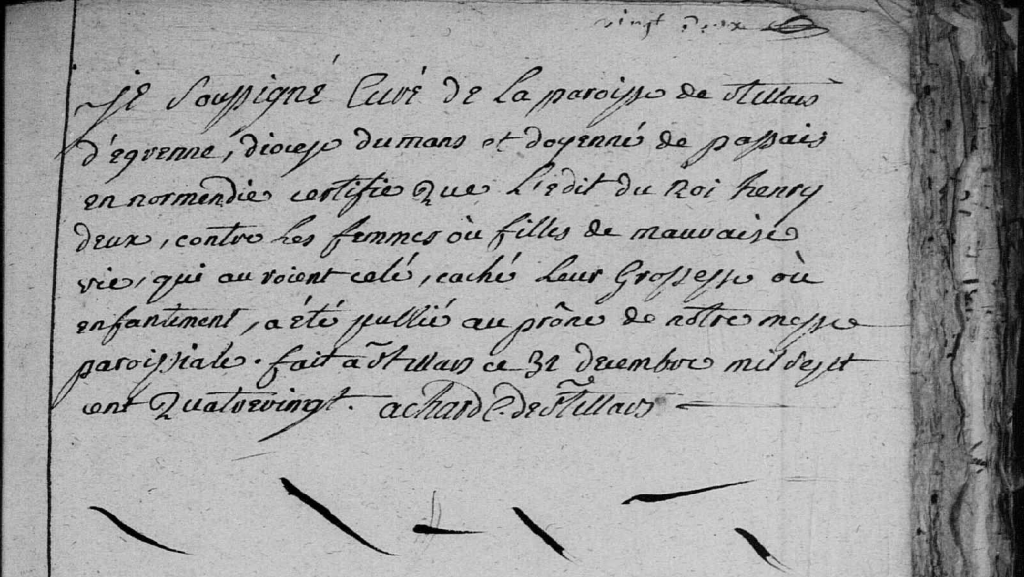 vingt deux
je soussigné Curé de La paroisse de st illais
d'egrenne, diocese du mans et doyenné de passais
en normendie certifie Que L'edit du Roi henry
deux, contre Les femmes où filles de mauvaise
vie, qui auroient celé, caché Leur Grossesse où
enfantement, a été publié au prône de notre messe
paroissiale. fait à st illais ce 31 decembre mil sept
cent Quatrevingt. achard C. de st illais